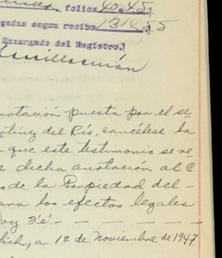 folios 40-45
gados segun recibo 131455
Encargado del Registro.
notación puesta por el se
tínez del Río, cancélese la
que este testimonio se re
dicha anotación al C.
de la Propiedad del
para los efectos legales
Doy fé.
a 12 de Noviembre de 1947